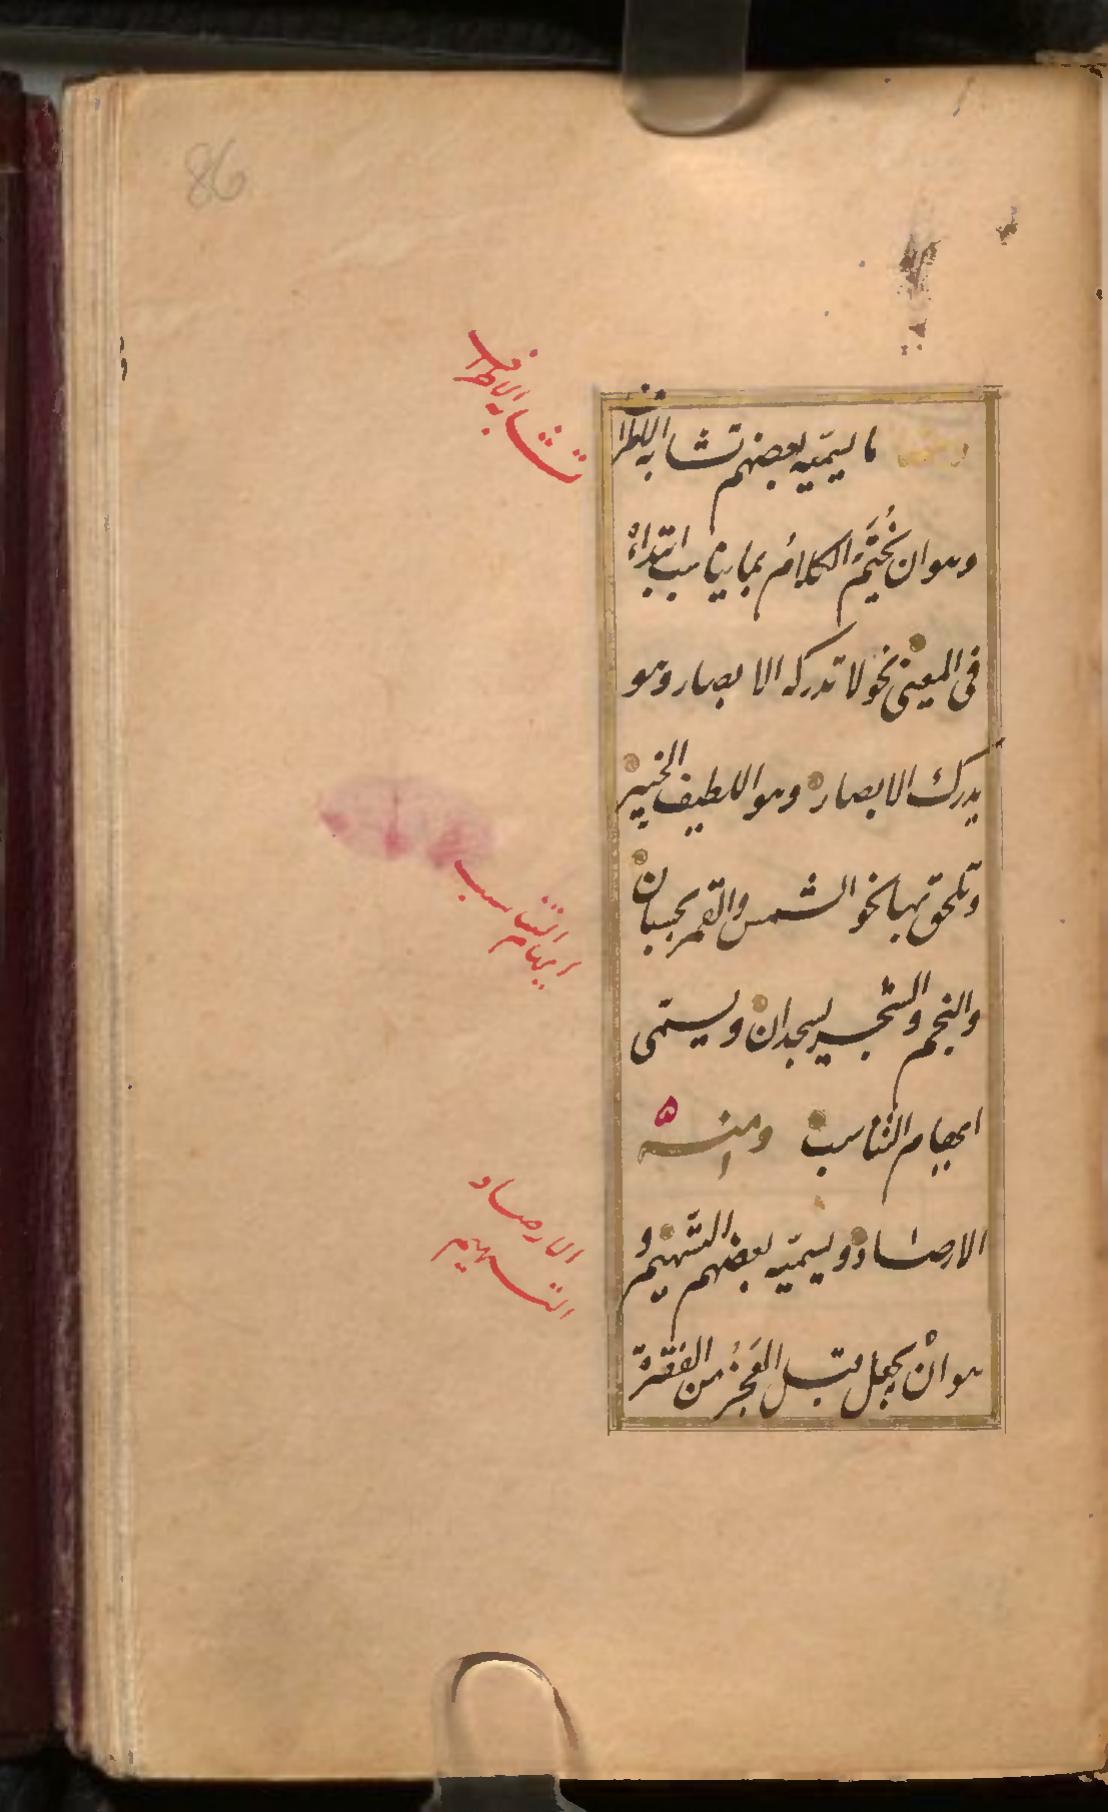 86
ومنها ما يسمّيه بعضهم تشابه الاطراف
وهو ان يُخْتَمَ الكلامُ بما يناسب ابتداءَهُ
فى المعنى نحو لا تدركه الابصار وهو
يدرك الابصار وهو اللطيف الخبير
وتلحق بها نحو الشمس والقمر بحسبان
والنجم والشجر يسجدان ويسمّى
ايهام التناسب ومنه
الارصاد ويسمّيه بعضهم التسهيم و
هو انْ يجعل قبل العَجُزِ من الفقرة
تشابه الاطراف
ايهام التناسب
الارصاد
التسهيم